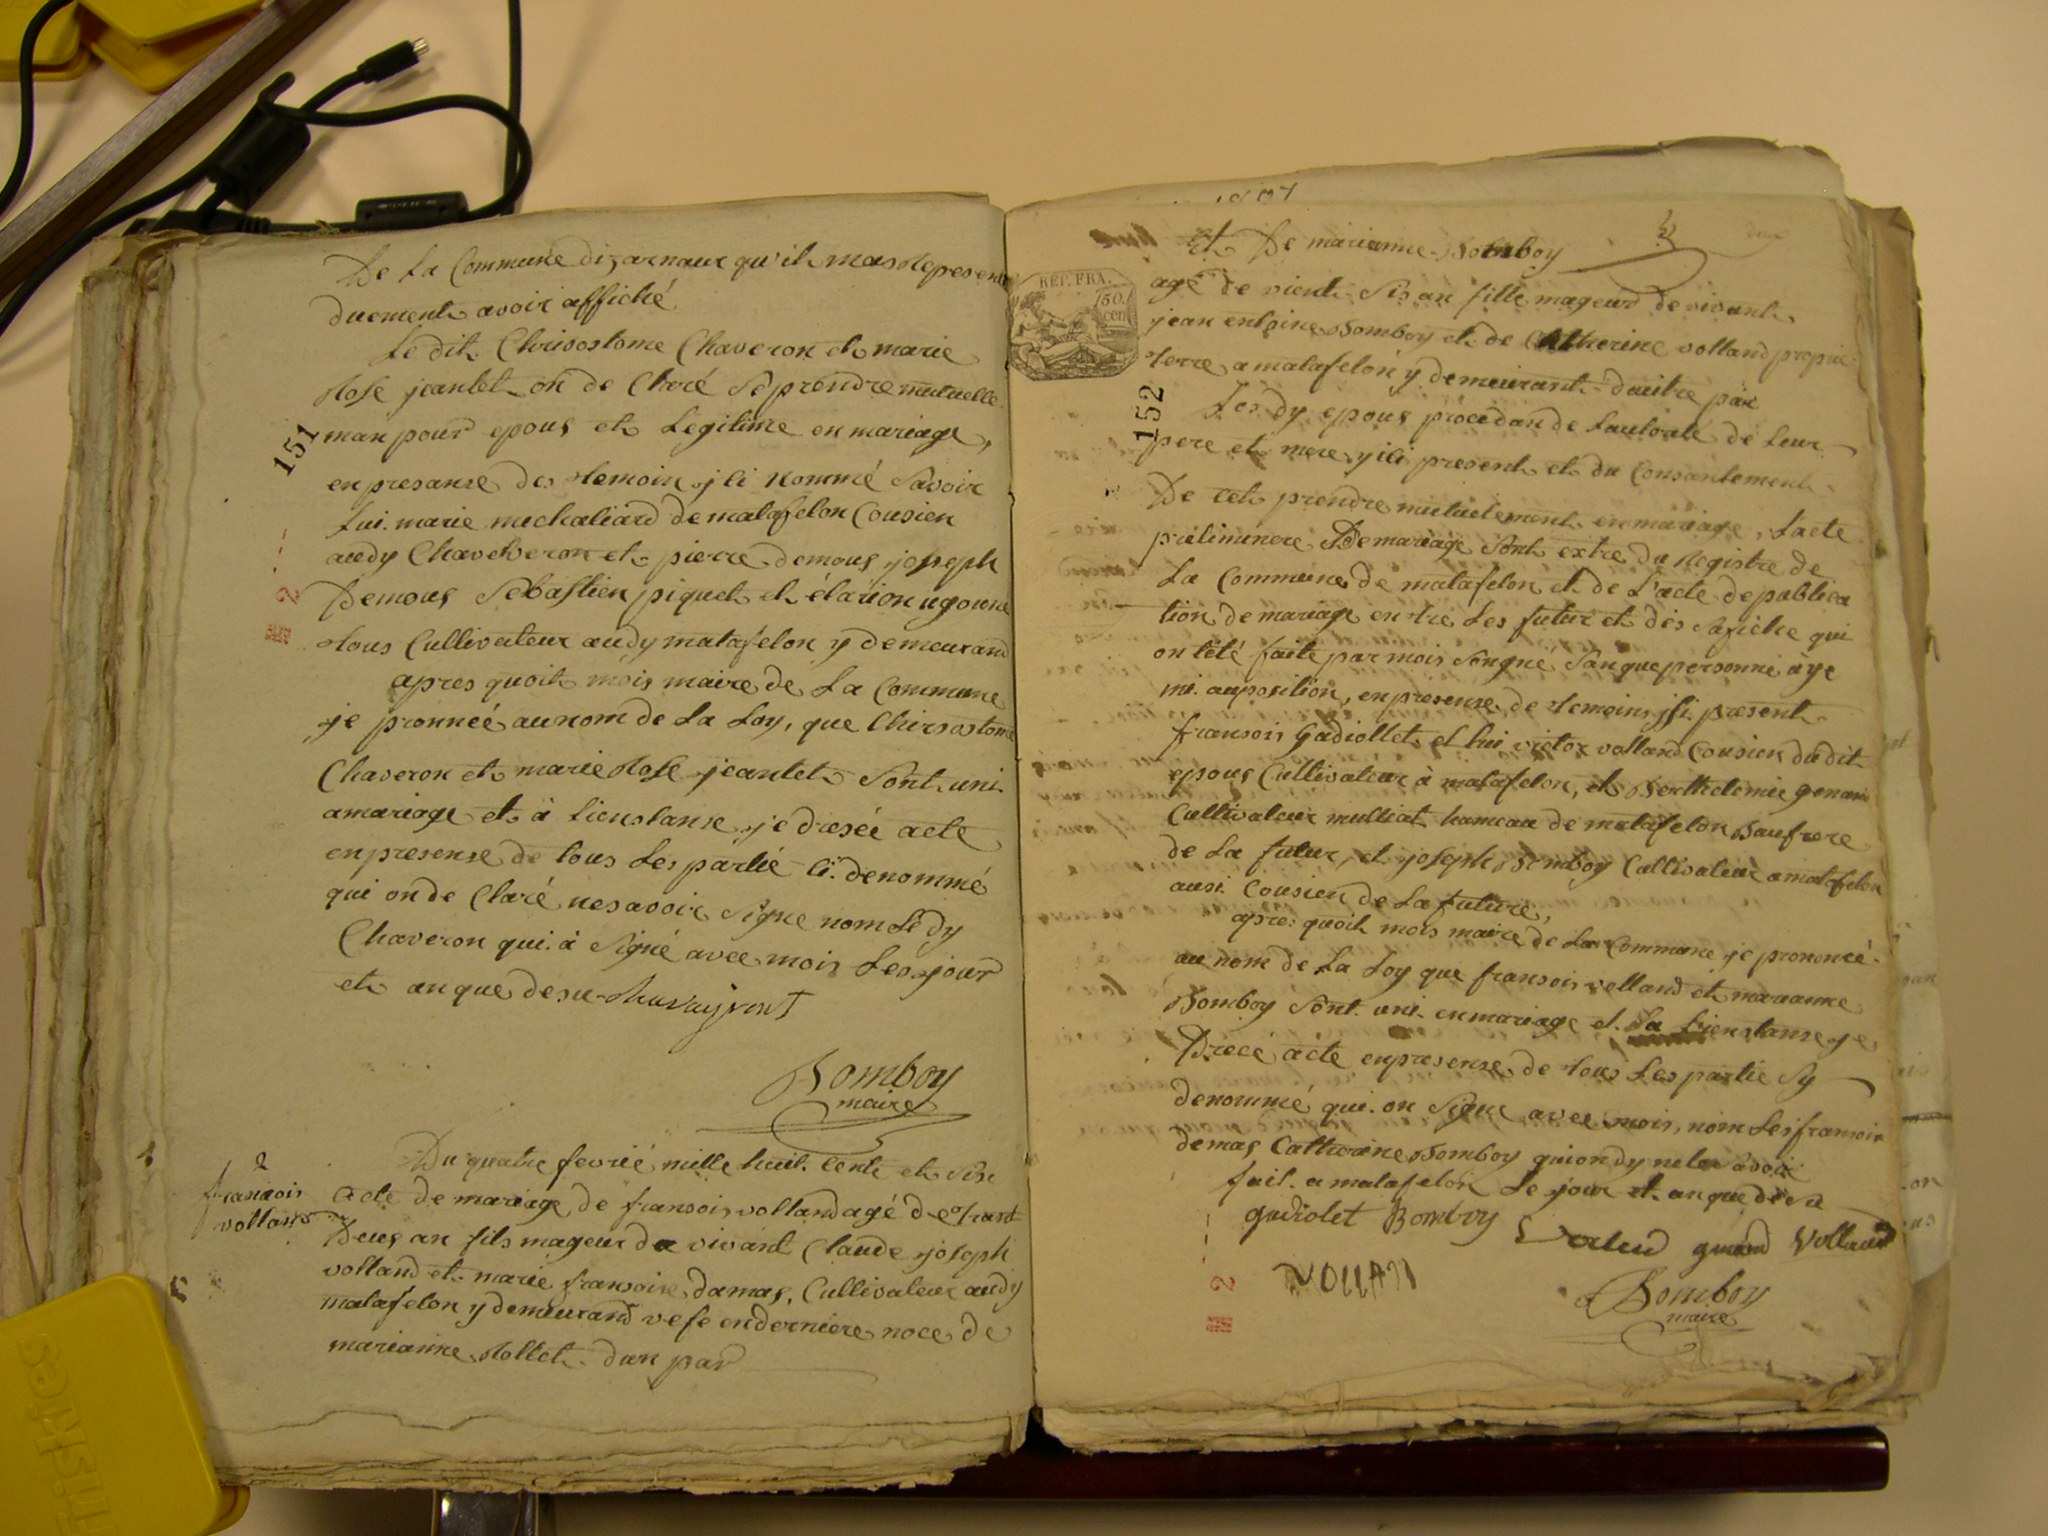 De La Commune dizarnaux qu'il mas Represent
duement avoir affiché
Le dit Chrisostome Chaveron et marie
Rose jeantet on de Claré se prendre mutuelle
man pour epous et Legitime en mariage,
en presanse des temoin ici nommé Savoir
Lui. marie michaliard de matafelon Cousien
audy Chaveron et pierre demous, joseph
Demous Sebastien piquet et
tous Cullivateur audy matafelon y demeurand
apres quoit mois maire de La Commune
je pronnée au nom de La Loy, que Chirsostome
Chaveron et marie Rose jeantet Sont uni
a mariage et à Lienstanse je dresée acte
en presense de tous Les partié ci. denommé
qui on de Claré ne savoir Signe nom Le dy
Chaveron qui. à Signé avec mois Les jour
et an que desu
Bomboy
maire
151
2
2
fransois
volland
Du quatre fevrié mille huit. Cente et Six
Acte de mariage de fransois volland agé de trant
Deus an fils mageur de vivant Claude joseph
volland et marie fransoise damas, Cullivateur audy
matafelon y demeurand vefe en derniere noce de
marianne Rollet. dun par
Et De marianne Bomboy
agé de vient Sis an fille mageurd de vivant
jean entoine Bomboy et de Catherine volland proprie
terre a matafelon y demeurant dautre par
REP. FRA.
50.
cen
152
Les dy epous procedan de Lautorité de Leur
pere et mere y ici present et du Consantement
De cet prendre mutuelement en mariage, Lacte
priliminere De mariage Sont extre du Registre de
La Commune de matafelon et de L'acte de publica
tion de mariage entre Les futur et des Safiche qui
on tété faite par mois Songné Sanque personne aye
mi. auposition, en presense de temoins isi present
fransois gadiollet et Lui victor volland Cousien du dit
epous Cullivateur à matafelon, et Berthelemie
Cullivateur mulliat hameau de matafelon Baufrere
de La futur, et joseph Bomboy Cullivateur a matafelon
ausi Cousien de La future,
apres quoit mois maire de La Commune je prononcé
au nom de La Loy que fransois volland et marianne
Bomboy Sont uni en mariage et a Lienstanse je
Drecé acte en presense de tous Les partie Sy
denommé qui. on Signe avec mois, nom Les fransoise
demas Catherine Bomboy qui on dy ne Le Savoir
fait. a matafelon Le jour et an que desu
gadiolet Bomboy Volland
VOLLAN
Bomboy
maire
2